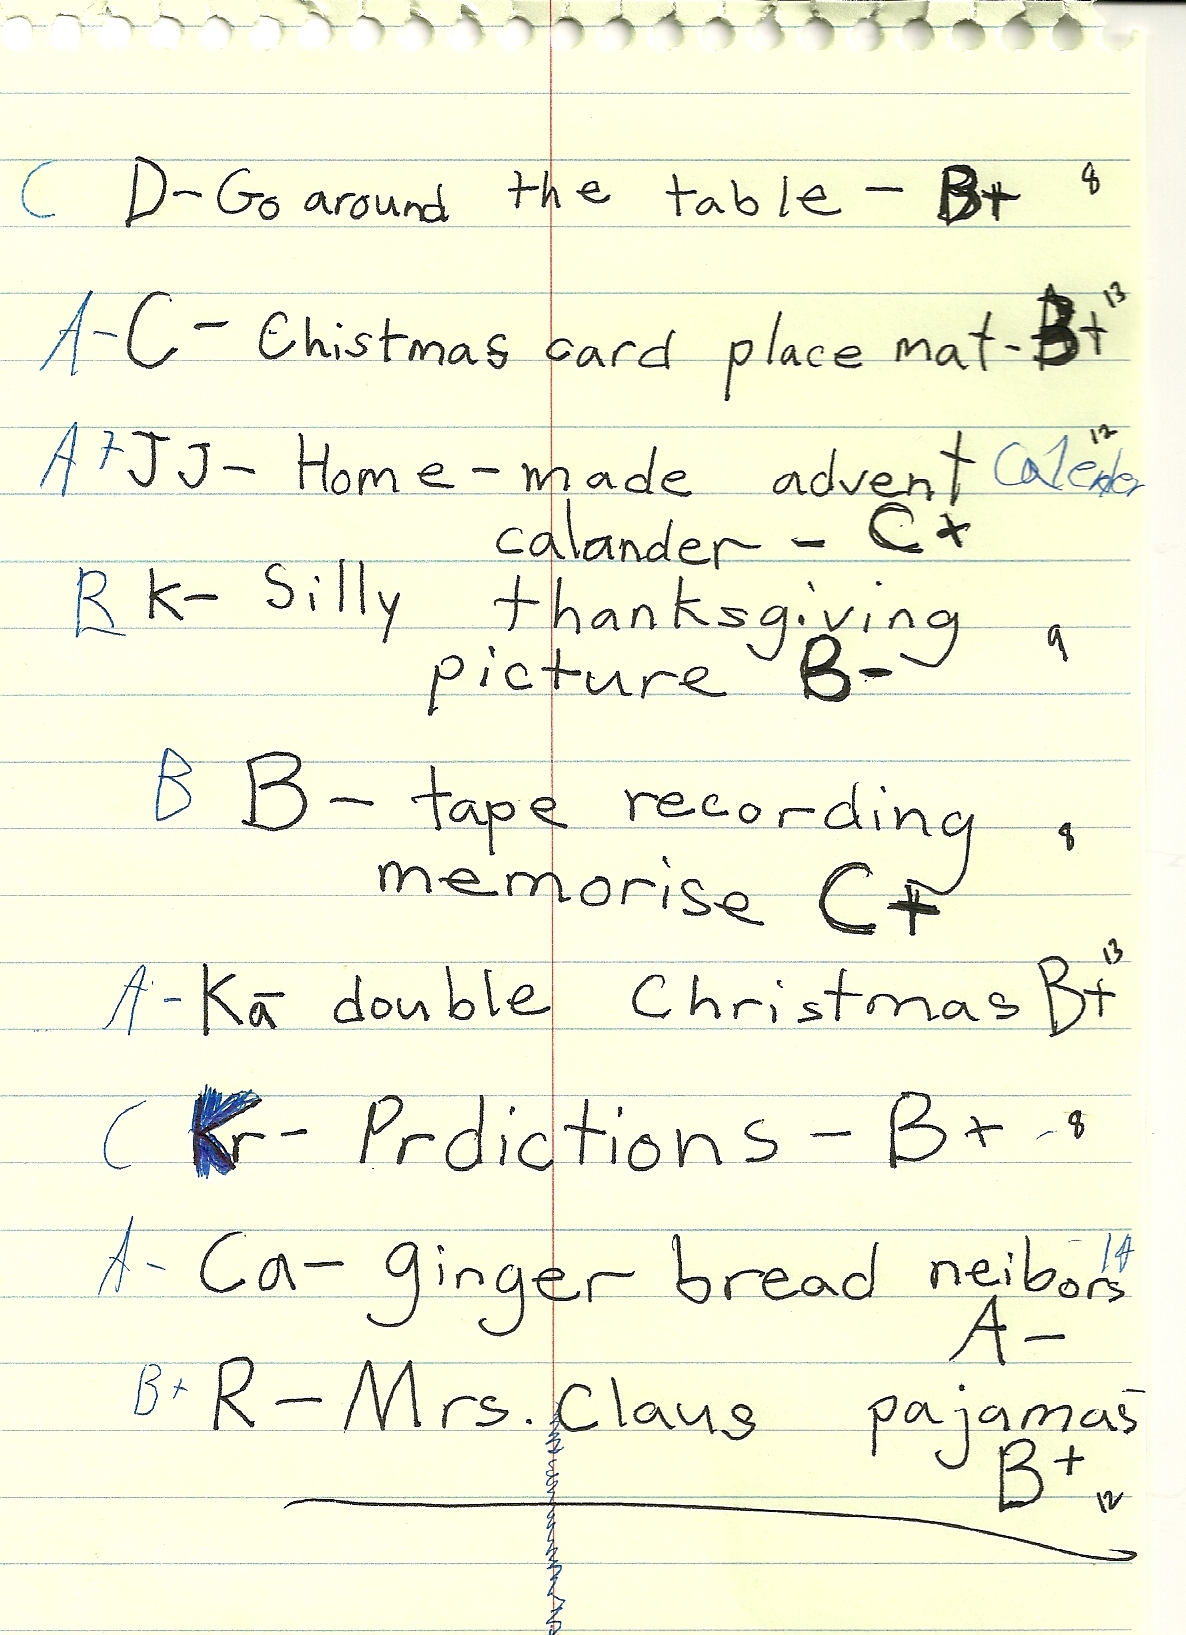 C D- Go around the table - B+ 8
A- C- Chistmas card place mat- B+ 13
A+ JJ- Home-made advent Calender 12
calander - C+
B K- Silly thanksgiving
picture B- 9
B B- tape recording 8
memorise C+
A- Ka- double Christmas B+ 13
C Kr- Prdictions - B+ -8
A- Ca- ginger bread neibors 14
A-
B+ R- Mrs. Claus pajamas-
B+ 12